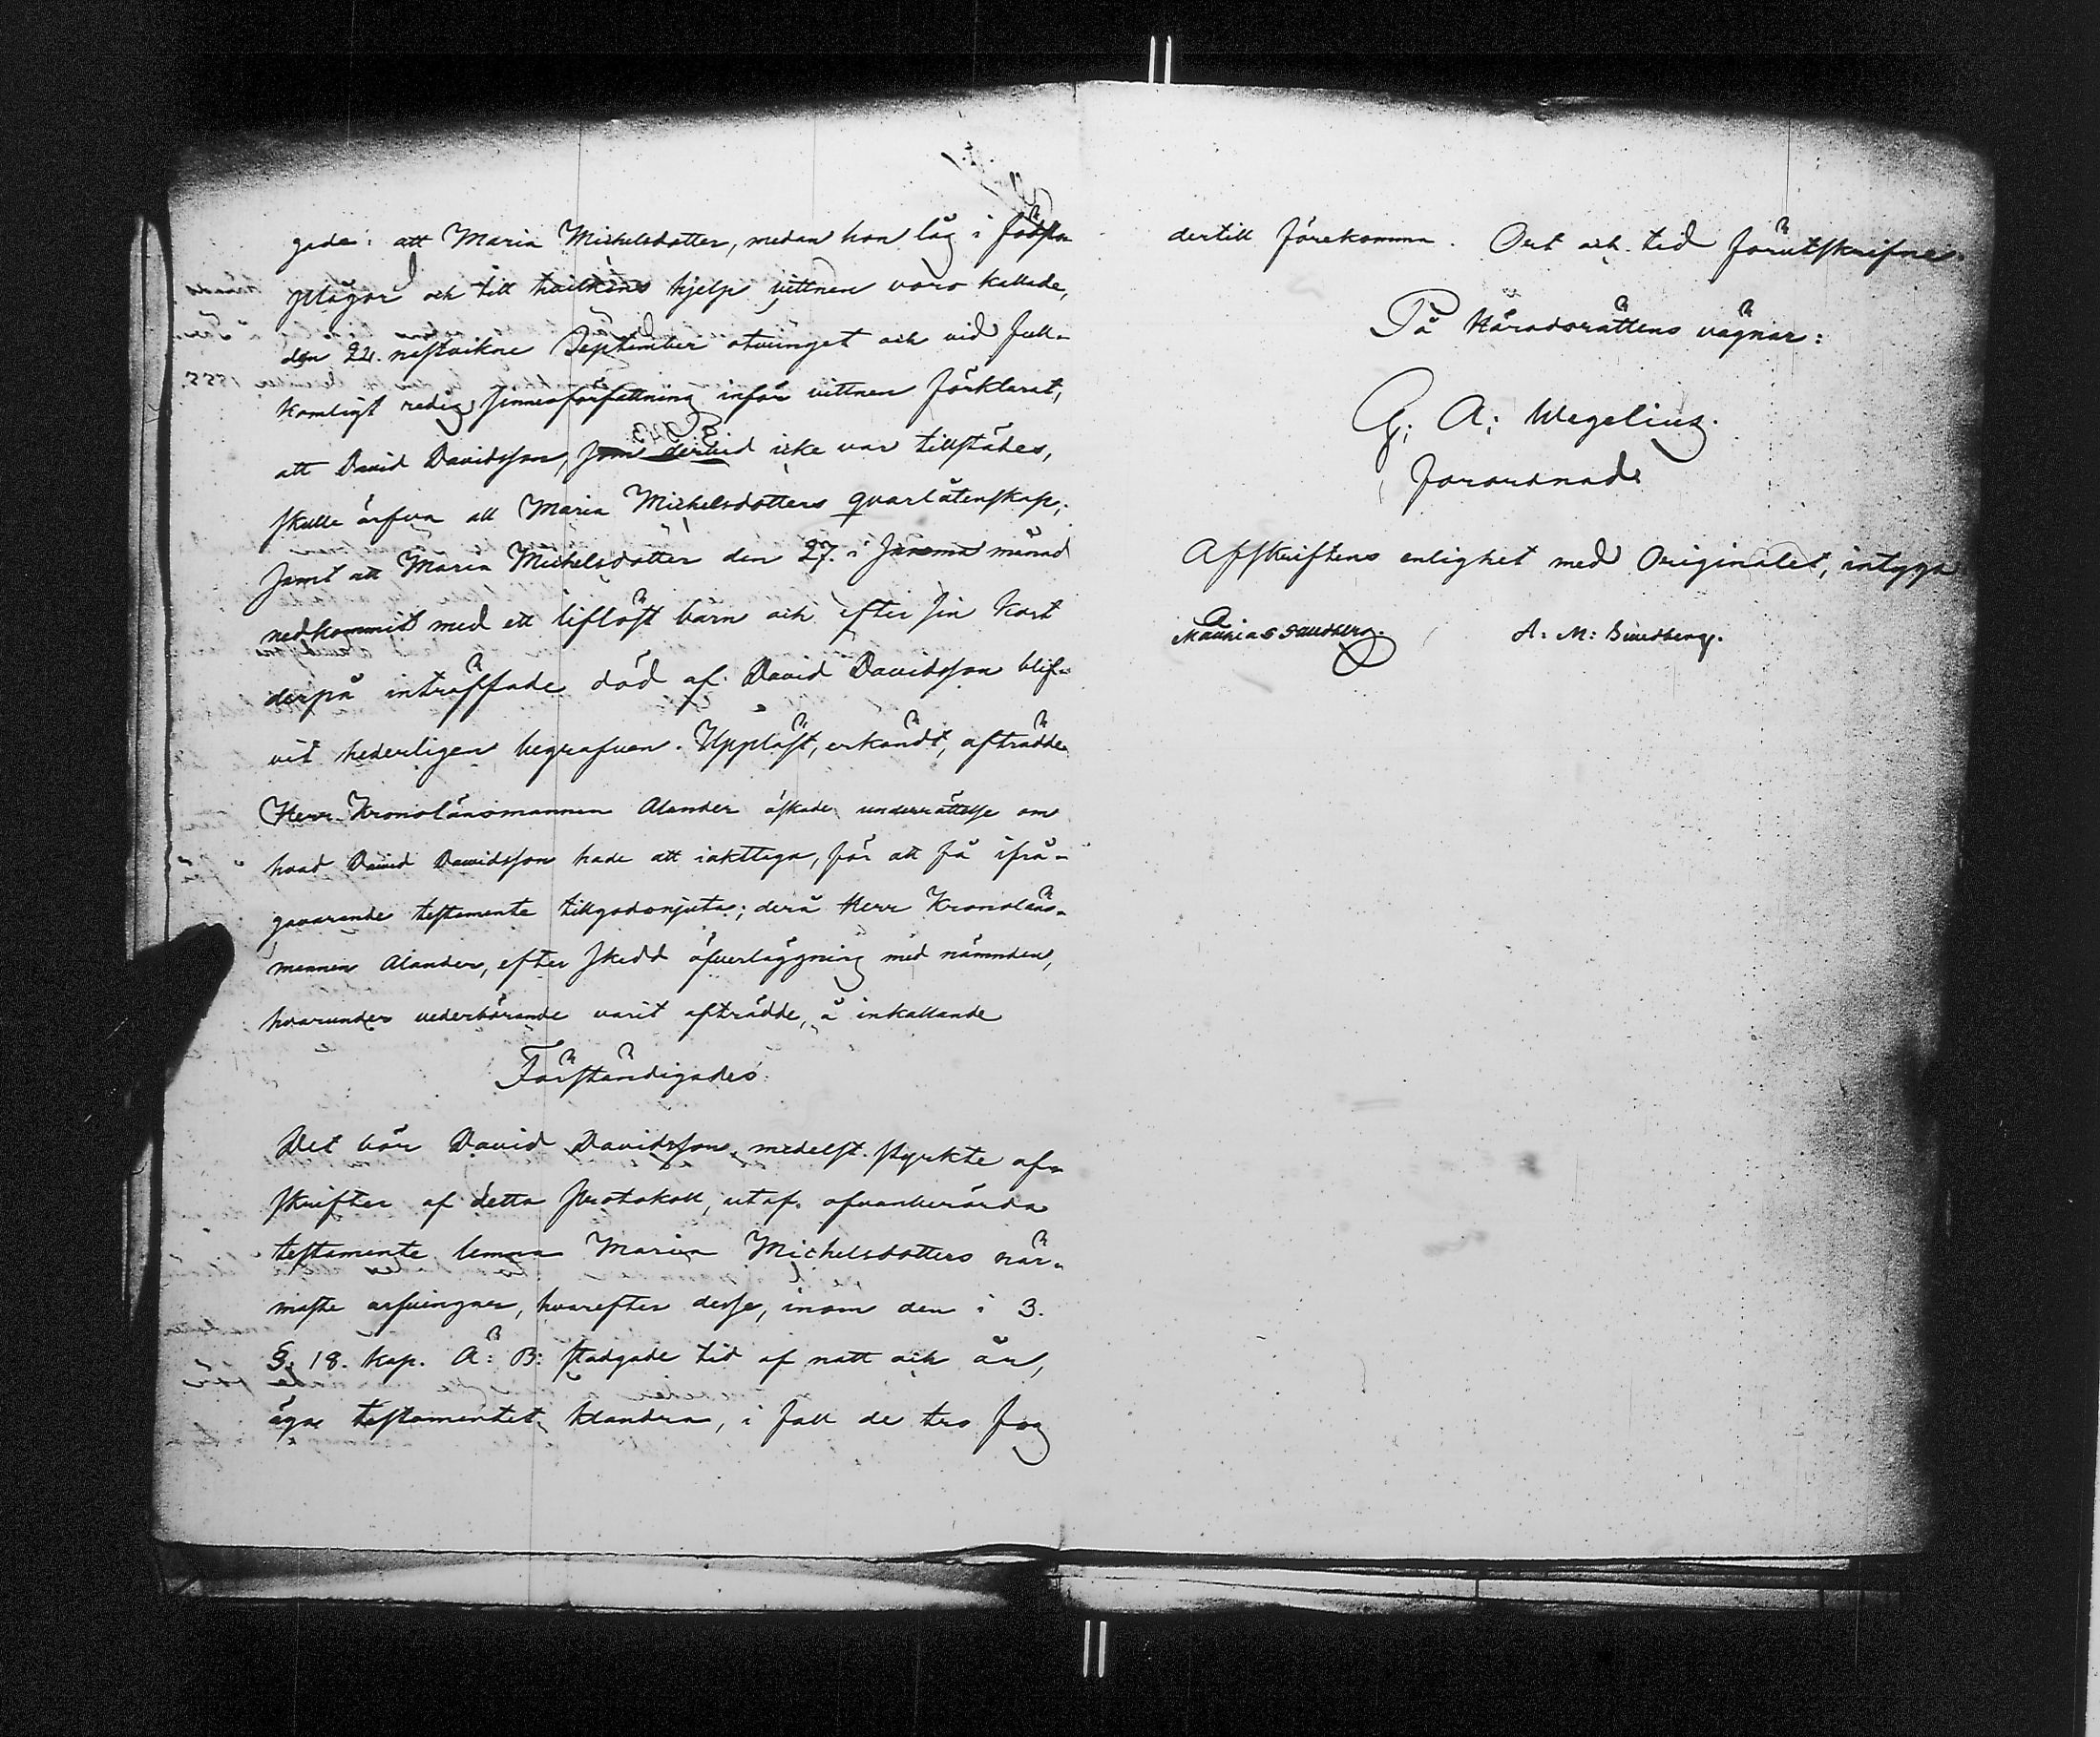 gade: att Maria Michelsdotter, medan hon låg i födslo-
plågor och till hvilkens hjelp vittnen voro kallade,
den 24. nestvikne September otvunget och vid full-
komligt redig sinnesförfattning inför vittnen förklarat,
att David Davidsson, som dervid icke var tillstädes,
skulle ärfva all Maria Michelsdotters qvarlåtenskap;
samt att Maria Michelsdotter den 27. i samma månad
nedkommit med ett liflöst barn och efter sin kort
derpå inträffade död af David Davidsson blif-
vit hederligen begrafven. Uppläst, erkändt, afträdde.
Herr Kronolänsmannen Alander äskade underrättelse om
hvad David Davidsson hade att iakttaga, för att få ifrå-
gavarande testamente tillgodonjuta; derå Herr Kronoläns-
mannen Alander, efter skedd öfverläggning med nämnden,
hvarunder vederbörande varit afträdde, å inkallande
Förständigades:
Det bör David Davidsson, medelst styrkte af-
skrifter af detta protokoll, utaf ofvanberörda
testamente lemna Maria Michelsdotters när-
maste arfvingar, hvarefter desse, inom den i 3.
§. 18. kap. Ä: B: stadgade tid af natt och år,
äga testamentet klandra, i fall de tro fog
dertill förekomma. Ort och tid förutskrifne.
På Häradsrättens vägnar:
G; A; Wegelius.
förordnad
Afskriftens enlighet med Originalet, intyga
Mathias Sundberg. A: M: Sundberg.